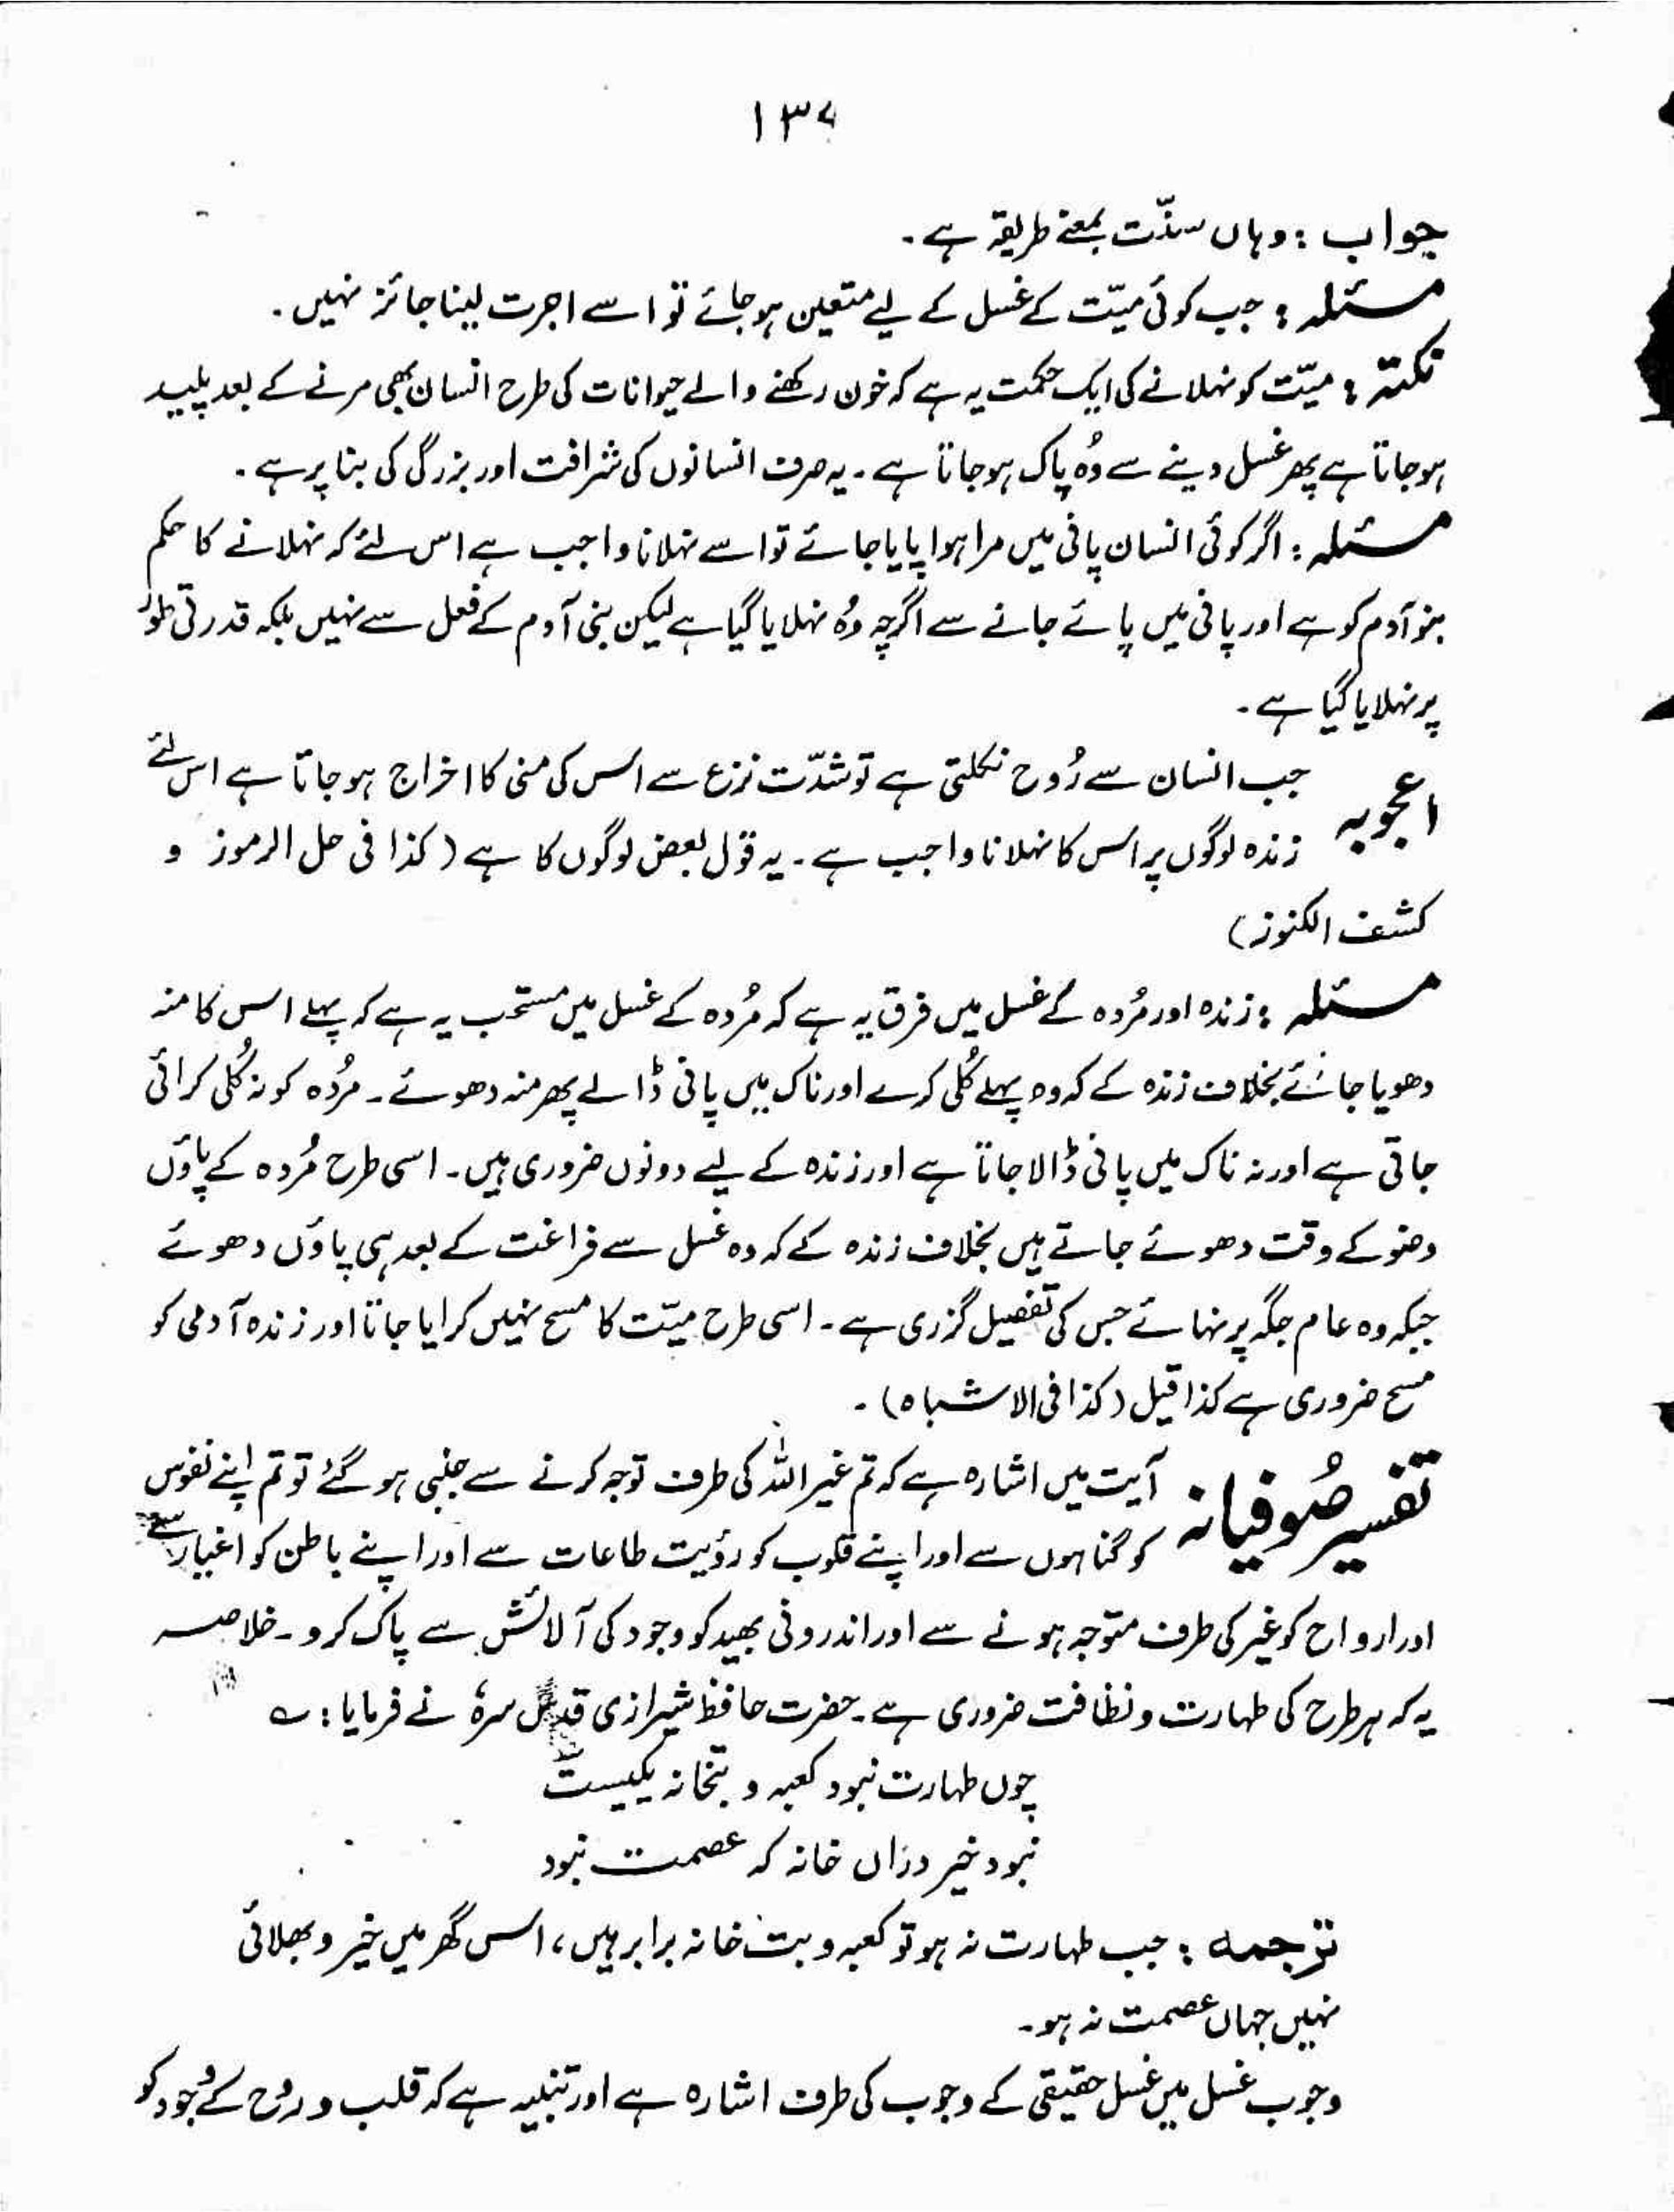 ۱۳۷
جواب : وہاں سنّت بمعنے طریقہ ہے۔
مسئلہ : جب کوئی میّت کے غسل کے لیے متعین ہو جائے تو اسے اجرت لینا جائز نہیں۔
نکتہ : میّت کو نہلانے کی ایک حکمت یہ ہے کہ خون رکھنے والے حیوانات کی طرح انسان بھی مرنے کے بعد پلید
ہوجاتا ہے پھر غسل دینے سے وُہ پاک ہوجاتا ہے۔ یہ صرف انسانوں کی شرافت اور بزرگی کی بنا پر ہے۔
مسئلہ : اگر کوئی انسان پانی میں مرا ہوا پایا جائے تو اسے نہلانا واجب ہے اس لئے کہ نہلانے کا حکم
بنو آدم کو ہے اور پانی میں پائے جانے سے اگرچہ وُہ نہلایا گیا ہے لیکن بنی آدم کے فعل سے نہیں بلکہ قدرتی طور
پر نہلایا گیا ہے۔
اعجوبہ جب انسان سے رُوح نکلتی ہے تو شدّت نزع سے اس کی منی کا اخراج ہو جاتا ہے اس لئے
زندہ لوگوں پر اس کا نہلانا واجب ہے۔ یہ قول بعض لوگوں کا ہے (کذا فی حل الرموز و
کشف الکنوز)
مسئلہ : زندہ اور مُردہ کے غسل میں فرق یہ ہے کہ مُردہ کے غسل میں مستحب یہ ہے کہ پہلے اس کا منہ
دھویا جائے بخلاف زندہ کے کہ وہ پہلے کُلی کرے اور ناک میں پانی ڈالے پھر منہ دھوئے۔ مُردہ کو نہ کُلی کرائی
جاتی ہے اور نہ ناک میں پانی ڈالا جاتا ہے اور زندہ کے لیے دونوں ضروری ہیں۔ اسی طرح مُردہ کے پاؤں
وضو کے وقت دھوئے جاتے ہیں بخلاف زندہ کے کہ وہ غسل سے فراغت کے بعد ہی پاؤں دھوئے
جبکہ وہ عام جگہ پر نہائے جس کی تفصیل گزری ہے۔ اسی طرح میّت کا مسح نہیں کرایا جاتا اور زندہ آدمی کو
مسح ضروری ہے کذا قیل (کذا فی الاشباہ)۔
تفسیر صُوفیانہ آیت میں اشارہ ہے کہ تم غیر اللہ کی طرف توجہ کرنے سے جنبی ہو گئے تو تم اپنے نفوس
کو گناہوں سے اور اپنے قلوب کو رؤیت طاعات سے اور اپنے باطن کو اغیار سے
اور ارواح کو غیر کی طرف متوجہ ہونے سے اور اندرونی بھید کو وجود کی آلائش سے پاک کرو۔ خلاصہ
یہ کہ ہر طرح کی طہارت و نظافت ضروری ہے۔ حضرت حافظ شیرازی قدس سرہٗ نے فرمایا : ؎
چوں طہارت نبود کعبہ و بتخانہ یکیست
نبود خیر دراں خانہ کہ عصمت نبود
ترجمہ : جب طہارت نہ ہو تو کعبہ و بت خانہ برابر ہیں، اس گھر میں خیر و بھلائی
نہیں جہاں عصمت نہ ہو۔
وجوب غسل میں غسل حقیقی کے وجوب کی طرف اشارہ ہے اور تنبیہ ہے کہ قلب و روح کے وُجود کو